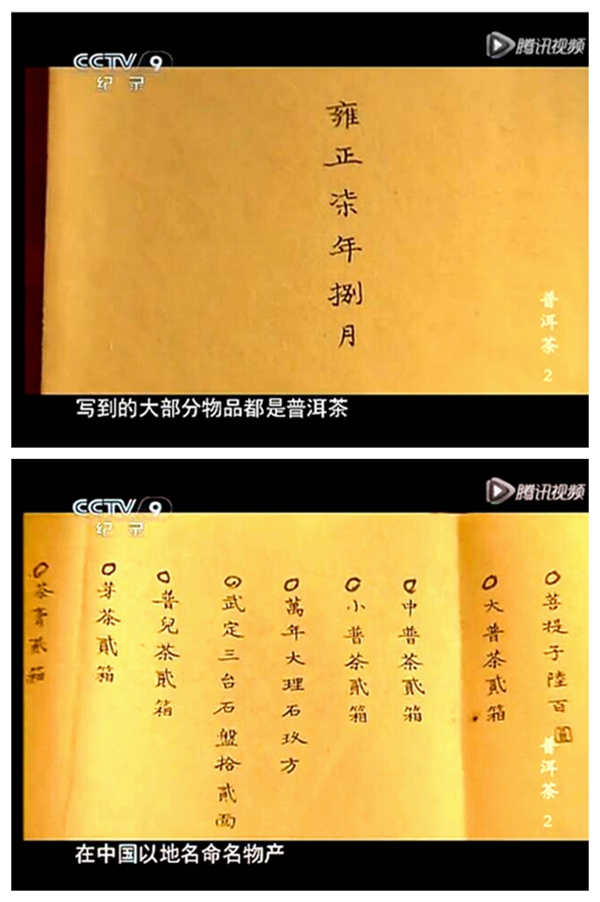 CCTV 9
纪录
腾讯视频
雍正柒年捌月
普洱茶 2
写到的大部分物品都是普洱茶
CCTV 9
纪录
腾讯视频
菩提子陸百圓
大普茶貳箱
中普茶貳箱
小普茶貳箱
萬年大理石玖方
武定三台石盤拾貳面
普兒茶貳箱
芽茶貳箱
茶膏貳箱
普洱茶 2
在中国以地名命名物产